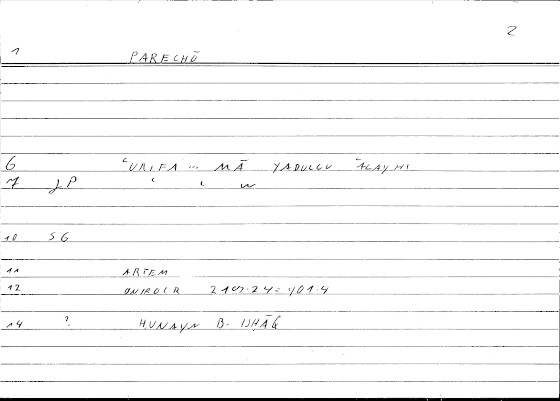 2
1 PARECHŌ
6 ʿURIFA ... MĀ YADULLU ʿALAYHI
7 JP
10 SG
11 ARTEM
12 ONIROCR
14 ? ḤUNAYN B. ISḤĀQ